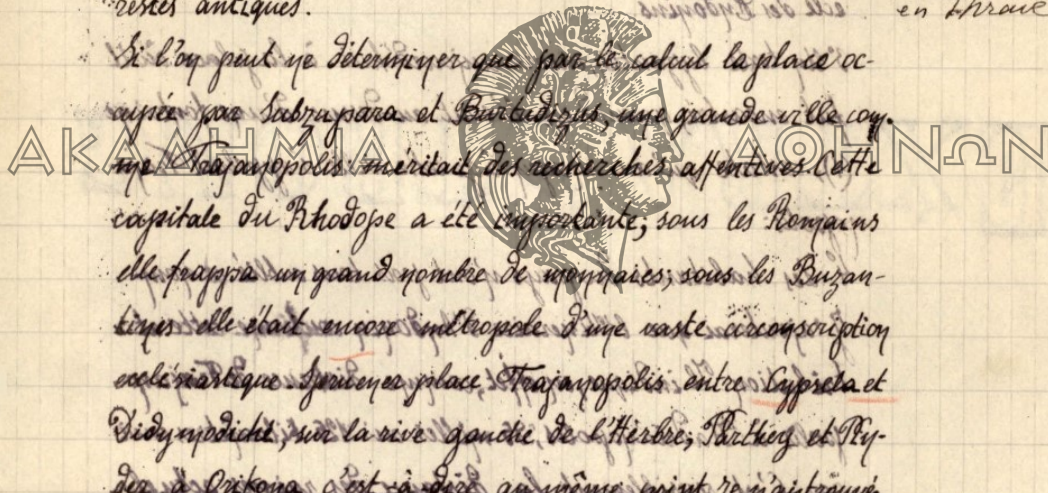 restes antiques.
en Thrace
Si l'on peut ne déterminer que par le calcul la place oc-
cupée par Subzupara et Burtudizus, une grande ville com-
me Trajanopolis méritait des recherches attentives. Cette
capitale du Rhodope a été importante, sous les Romains
elle frappa un grand nombre de monnaies; sous les Buzan-
tines elle était encore métropole d'une vaste circonscription
ecclésiastique. place Trajanopolis entre Cypsela et
Didymodiché, sur la rive gauche de l'Hèrbre, Parthey et Pin-
der à Orikona c'est-à-dire au même point
ΑΚΑΔΗΜΙΑ ΑΘΗΝΩΝ